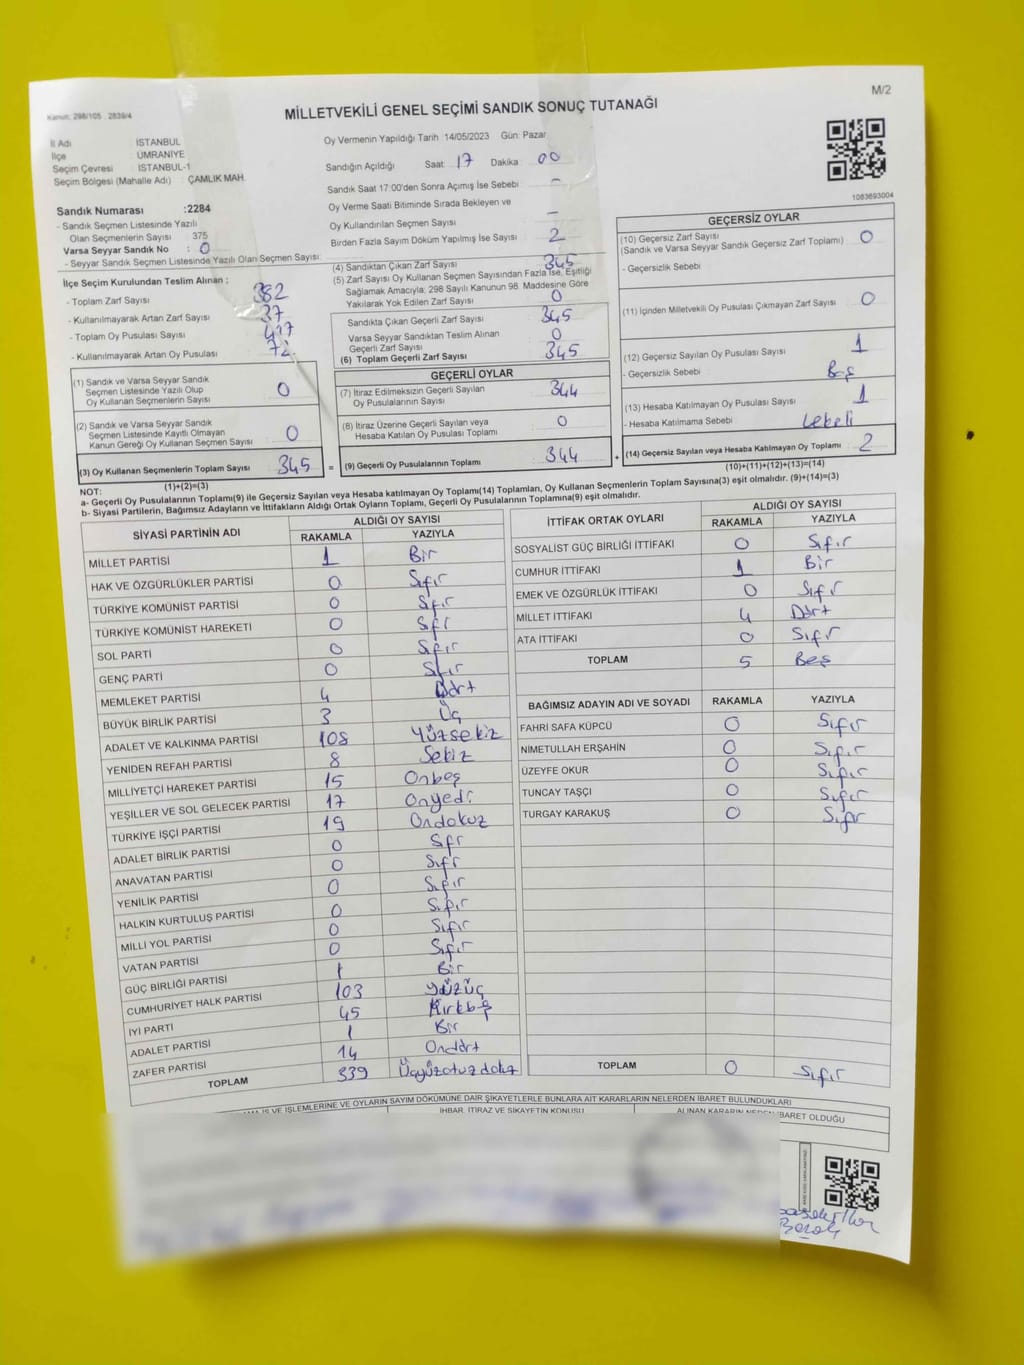 M/2
Kanun: 298/105 2839/4
MİLLETVEKİLİ GENEL SEÇİMİ SANDIK SONUÇ TUTANAĞI
İl Adı : İSTANBUL
İlçe : ÜMRANİYE
Seçim Çevresi : İSTANBUL-1
Seçim Bölgesi (Mahalle Adı) : ÇAMLIK MAH.
Oy Vermenin Yapıldığı Tarih 14/05/2023 Gün: Pazar
Sandığın Açıldığı Saat: 17 Dakika 00
Sandık Saat 17:00'den Sonra Açımış İse Sebebi -
Oy Verme Saati Bitiminde Sırada Bekleyen ve
Oy Kullandırılan Seçmen Sayısı -
Birden Fazla Sayım Döküm Yapılmış İse Sayısı 2
1083693004
Sandık Numarası :2284
- Sandık Seçmen Listesinde Yazılı
Olan Seçmenlerin Sayısı : 375
Varsa Seyyar Sandık No : 0
- Seyyar Sandık Seçmen Listesinde Yazılı Olan Seçmen Sayısı:
İlçe Seçim Kurulundan Teslim Alınan :
- Toplam Zarf Sayısı 382
- Kullanılmayarak Artan Zarf Sayısı 37
- Toplam Oy Pusulası Sayısı 417
- Kullanılmayarak Artan Oy Pusulası 72
(1) Sandık ve Varsa Seyyar Sandık
Seçmen Listesinde Yazılı Olup
Oy Kullanan Seçmenlerin Sayısı 0
(2) Sandık ve Varsa Seyyar Sandık
Seçmen Listesinde Kayıtlı Olmayan
Kanun Gereği Oy Kullanan Seçmen Sayısı 0
(3) Oy Kullanan Seçmenlerin Toplam Sayısı 345
(1)+(2)=(3)
(4) Sandıktan Çıkan Zarf Sayısı 345
(5) Zarf Sayısı Oy Kullanan Seçmen Sayısından Fazla İse, Eşitliği
Sağlamak Amacıyla; 298 Sayılı Kanunun 98. Maddesine Göre
Yakılarak Yok Edilen Zarf Sayısı 0
Sandıkta Çıkan Geçerli Zarf Sayısı 345
Varsa Seyyar Sandıktan Teslim Alınan
Geçerli Zarf Sayısı 0
(6) Toplam Geçerli Zarf Sayısı 345
GEÇERLİ OYLAR
(7) İtiraz Edilmeksizin Geçerli Sayılan
Oy Pusulalarının Sayısı 344
(8) İtiraz Üzerine Geçerli Sayılan veya
Hesaba Katılan Oy Pusulası Toplamı 0
= (9) Geçerli Oy Pusulalarının Toplamı 344 +
GEÇERSİZ OYLAR
(10) Geçersiz Zarf Sayısı
(Sandık ve Varsa Seyyar Sandık Geçersiz Zarf Toplamı) 0
- Geçersizlik Sebebi
(11) İçinden Milletvekili Oy Pusulası Çıkmayan Zarf Sayısı 0
(12) Geçersiz Sayılan Oy Pusulası Sayısı 1
- Geçersizlik Sebebi Boş
(13) Hesaba Katılmayan Oy Pusulası Sayısı 1
- Hesaba Katılmama Sebebi Lekeli
(14) Geçersiz Sayılan veya Hesaba Katılmayan Oy Toplamı 2
(10)+(11)+(12)+(13)=(14)
NOT:
a- Geçerli Oy Pusulalarının Toplamı(9) ile Geçersiz Sayılan veya Hesaba katılmayan Oy Toplamı(14) Toplamları, Oy Kullanan Seçmenlerin Toplam Sayısına(3) eşit olmalıdır. (9)+(14)=(3)
b- Siyasi Partilerin, Bağımsız Adayların ve İttifakların Aldığı Ortak Oyların Toplamı, Geçerli Oy Pusulalarının Toplamına(9) eşit olmalıdır.
SİYASİ PARTİNİN ADI ALDIĞI OY SAYISI
RAKAMLA YAZIYLA
MİLLET PARTİSİ 1 Bir
HAK VE ÖZGÜRLÜKLER PARTİSİ 0 Sıfır
TÜRKİYE KOMÜNİST PARTİSİ 0 Sıfır
TÜRKİYE KOMÜNİST HAREKETİ 0 Sıfr
SOL PARTİ 0 Sıfır
GENÇ PARTİ 0 Sıfır
MEMLEKET PARTİSİ 4 Dört
BÜYÜK BİRLİK PARTİSİ 3 Üç
ADALET VE KALKINMA PARTİSİ 108 Yüzsekiz
YENİDEN REFAH PARTİSİ 8 Sekiz
MİLLİYETÇİ HAREKET PARTİSİ 15 Onbeş
YEŞİLLER VE SOL GELECEK PARTİSİ 17 Onyedi
TÜRKİYE İŞÇİ PARTİSİ 19 Ondokuz
ADALET BİRLİK PARTİSİ 0 Sıfr
ANAVATAN PARTİSİ 0 Sıfr
YENİLİK PARTİSİ 0 Sıfır
HALKIN KURTULUŞ PARTİSİ 0 Sıfır
MİLLİ YOL PARTİSİ 0 Sıfır
VATAN PARTİSİ 0 Sıfır
GÜÇ BİRLİĞİ PARTİSİ 1 Bir
CUMHURİYET HALK PARTİSİ 103 Yüzüç
İYİ PARTİ 45 Kırkbş
ADALET PARTİSİ 1 Bir
ZAFER PARTİSİ 14 Ondört
TOPLAM 339 Üçyüzotuzdokz
İTTİFAK ORTAK OYLARI ALDIĞI OY SAYISI
RAKAMLA YAZIYLA
SOSYALİST GÜÇ BİRLİĞİ İTTİFAKI 0 Sıfır
CUMHUR İTTİFAKI 1 Bir
EMEK VE ÖZGÜRLÜK İTTİFAKI 0 Sıfır
MİLLET İTTİFAKI 4 Dört
ATA İTTİFAKI 0 Sıfr
TOPLAM 5 Beş
BAĞIMSIZ ADAYIN ADI VE SOYADI RAKAMLA YAZIYLA
FAHRİ SAFA KÜPCÜ 0 Sıfır
NİMETULLAH ERŞAHİN 0 Sıfır
ÜZEYFE OKUR 0 Sıfır
TUNCAY TAŞÇI 0 Sıfır
TURGAY KARAKUŞ 0 Sıfır
TOPLAM 0 Sıfır
İŞ VE İŞLEMLERİNE VE OYLARIN SAYIM DÖKÜMÜNE DAİR ŞİKAYETLERLE BUNLARA AİT KARARLARIN NELERDEN İBARET BULUNDUKLARI
İHBAR, İTİRAZ VE ŞİKAYETİN KONUSU ALINAN KARARIN NEDEN İBARET OLDUĞU